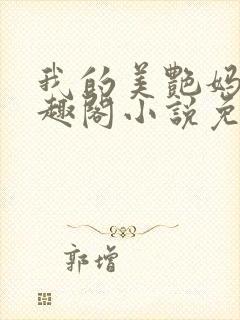 我的美艷妈
趣閣小說免
郭增